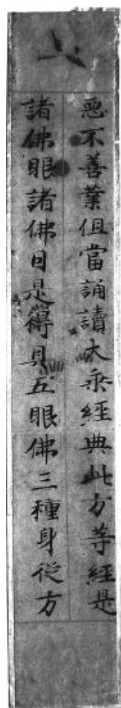 惡不善業但當誦讀大乘經典此方等經是
諸佛眼諸佛曰是得具五眼佛三種身從方